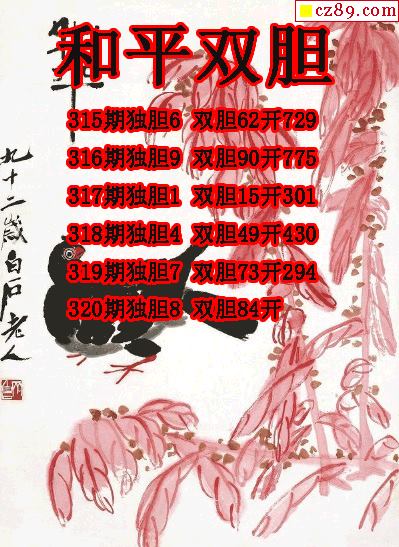 cz89.com
和平双胆
315期独胆6 双胆62开729
316期独胆9 双胆90开775
317期独胆1 双胆15开301
318期独胆4 双胆49开430
319期独胆7 双胆73开294
320期独胆8 双胆84开
九十二岁白石老人